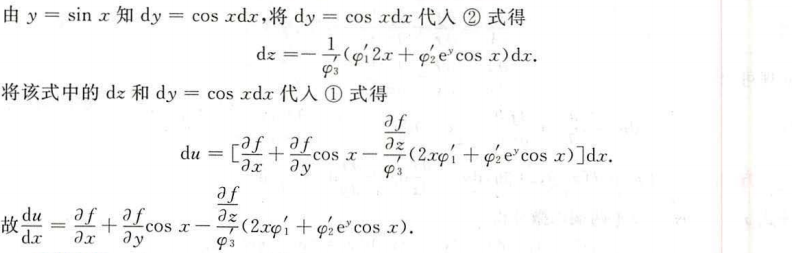 由 y = sin x 知 dy = cos xdx,将 dy = cos xdx 代入 ② 式得
dz = −\frac{1}{φ′_3}(φ′_1 2x + φ′_2 e^y cos x)dx.
将该式中的 dz 和 dy = cos xdx 代入 ① 式得
du = [\frac{∂f}{∂x} + \frac{∂f}{∂y}cos x − \frac{\frac{∂f}{∂z}}{φ′_3}(2xφ′_1 + φ′_2 e^y cos x)]dx.
故\frac{du}{dx} = \frac{∂f}{∂x} + \frac{∂f}{∂y}cos x − \frac{\frac{∂f}{∂z}}{φ′_3}(2xφ′_1 + φ′_2 e^y cos x).